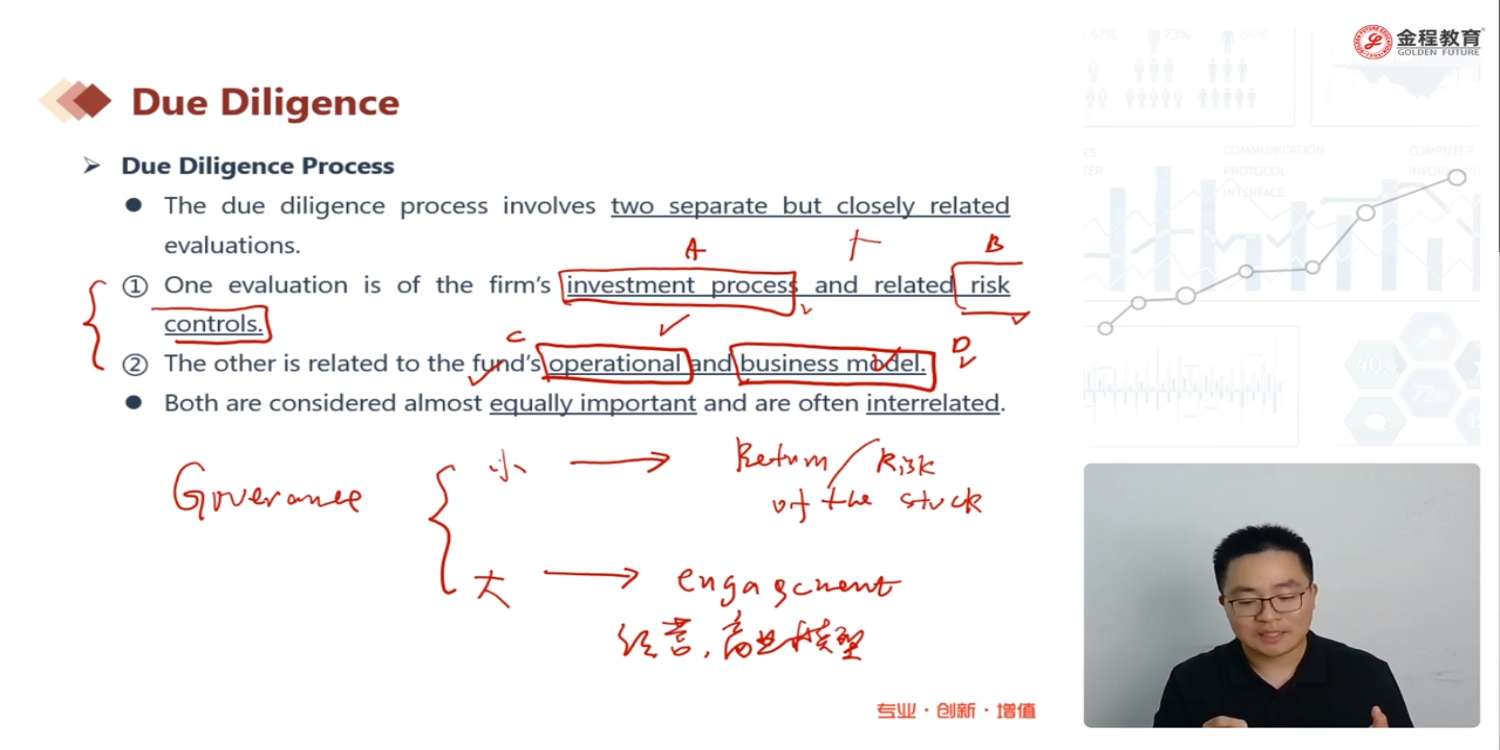 金程教育
GOLDEN FUTURE
47%
73%
Due Diligence
Due Diligence Process
The due diligence process involves two separate but closely related
evaluations.
A
B
① One evaluation is of the firm's investment process and related risk
controls.
C
D
② The other is related to the fund's operational and business model.
Both are considered almost equally important and are often interrelated.
COMMUNICATION
PROTOCOL
INTERFACE
COMPUTER
40%
72%
Goverance
小
Return / Risk
of the stock
大
engagement
经营，商业模型
专业·创新·增值